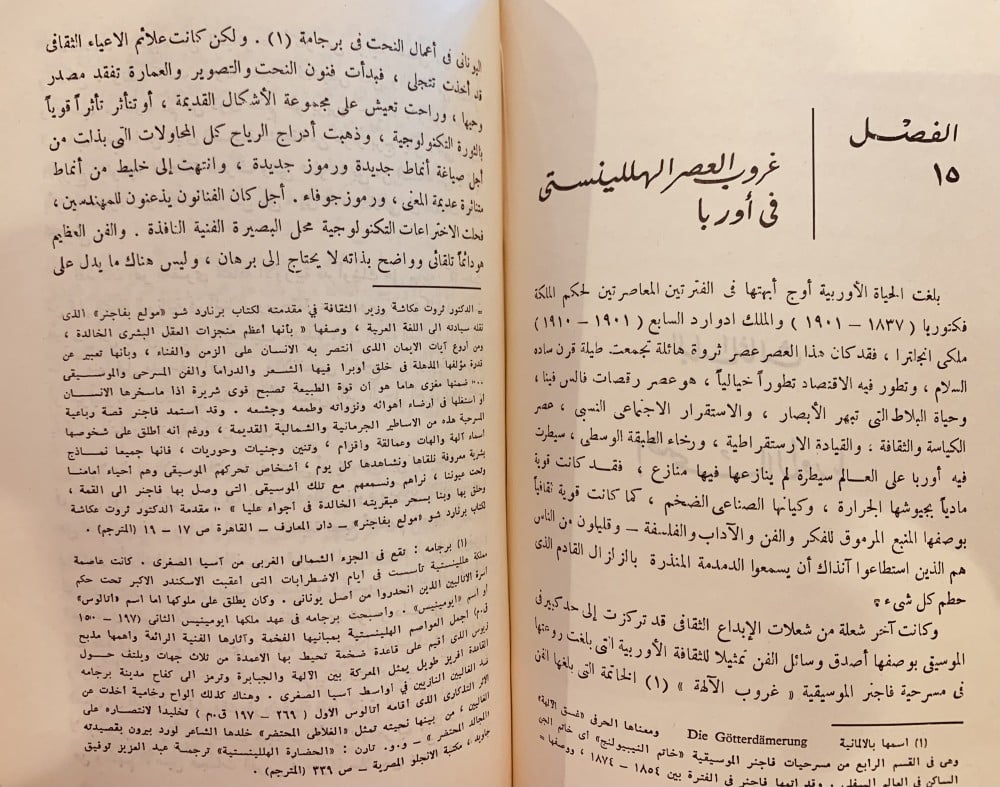 الفصل
١٥
غروب العصر الهللينستى
فى أوربا
بلغت الحياة الأوربية أوج أبهتها فى الفترتين المعاصرتين لحكم الملكة
فكتوريا ( ١٨٣٧ – ١٩٠١ ) والملك ادوارد السابع ( ١٩٠١ – ١٩١٠ )
ملكى انجلترا ، فقد كان هذا العصر عصر ثروة هائلة تجمعت طيلة قرن ساده
السلام ، وتطور فيه الاقتصاد تطوراً خيالياً ، هو عصر رقصات فالس فينا ،
وحياة البلاط التى تبهر الأبصار ، والاستقرار الاجتماعى النسبى ، عصر
الكياسة والثقافة ، والقيادة الارستقراطية ، ورخاء الطبقة الوسطى ، سيطرت
فيه أوربا على العالم سيطرة لم ينازعها فيها منازع ، فقد كانت قوية
مادياً بجيوشها الجرارة ، وكيانها الصناعى الضخم ، كما كانت قوية ثقافياً
بوصفها المنبع المرموق للفكر والفن والآداب والفلسفة – وقليلون من الناس
هم الذين استطاعوا آنذاك أن يسمعوا الدمدمة المنذرة بالزلزال القادم الذى
حطم كل شىء .
وكانت آخر شعلة من شعلات الإبداع الثقافى قد تركزت إلى حد كبير فى
الموسيقى بوصفها أصدق وسائل الفن تمثيلا للثقافة الأوربية التى بلغت روعتها
فى مسرحية فاجنر الموسيقية « غروب الآلهة » (١) الخاتمة التى بلغها الفن
(١) اسمها بالالمانية Die Götterdämerung ومعناها الحرفى «غسق الالهة»
وهى فى القسم الرابع من مسرحيات فاجنر الموسيقية «خاتم النيبيولنج» اى خاتم الجن
الساكن فى العالم السفلى . وقد اتمها فاجنر فى الفترة بين ١٨٥٤ – ١٨٧٤ ، ووصفها –
اليونانى فى أعمال النحت فى برجامة (١) . ولكن كانت علائم الاعياء الثقافى
قد أخذت تتجلى ، فبدأت فنون النحت والتصوير والعمارة تفقد مصدر
وحيها ، وراحت تعيش على مجموعة الأشكال القديمة ، أو تتأثر تأثراً قوياً
بالثورة التكنولوجية ، وذهبت أدراج الرياح كل المحاولات التى بذلت من
أجل صياغة أنماط جديدة ورموز جديدة ، وانتهت إلى خليط من أنماط
متناثرة عديمة المعنى ، ورموز جوفاء . أجل كان الفنانون يذعنون للمهندسين ،
فحلت الاختراعات التكنولوجية محل البصيرة الفنية النافذة . والفن العظيم
هو دائماً تلقائى وواضح بذاته لا يحتاج إلى برهان ، وليس هناك ما يدل على
– الدكتور ثروت عكاشة وزير الثقافة فى مقدمته لكتاب برنارد شو «مولع بفاجنر» الذى
نقله سيادته الى اللغة العربية ، وصفها « بأنها أعظم منجزات العقل البشرى الخالدة ،
ومن أروع آيات الايمان الذى انتصر به الانسان على الزمن والفناء ، وبأنها تعبير عن
قدرة مؤلفها المذهلة فى خلق اوبرا فيها الشعر والدراما والفن المسرحى والموسيقى
... ضمنها مغزى هاما هو أن قوة الطبيعة تصبح قوى شريرة اذا ماسخرها الانسان
أو استغلها فى ارضاء أهوائه ونزواته وطمعه وجشعه . وقد استمد فاجنر قصة رباعية
المسرحية هذه من الاساطير الجرمانية والشمالية القديمة ، ورغم أنه اطلق على شخوصها
أسماء آلهة والهات وعمالقة وأقزام ، وتنين وجنيات وحوريات ، فانها جميعا نماذج
بشرية معروفة نلقاها ونشاهدها كل يوم ، أشخاص تحركهم الموسيقى وهم أحياء أمامنا
وتحت عيوننا ، نراهم ونسمعهم مع تلك الموسيقى التى وصل بها فاجنر الى القمة ،
وحلق بها وبنا بسحر عبقريته الخالدة فى أجواء عليا » . مقدمة الدكتور ثروت عكاشة
لكتاب برنارد شو «مولع بفاجنر» – دار المعارف – القاهرة ص ١٧ – ١٩ (المترجم) .
(١) برجامه : تقع فى الجزء الشمالى الغربى من آسيا الصغرى . كانت عاصمة
مملكة هللينستية تأسست فى أيام الاضطرابات التى أعقبت الاسكندر الاكبر تحت حكم
أسرة الاتاليين الذين انحدروا من أصل يونانى . وكان يطلق على ملوكها اما اسم «اتالوس»
أو اسم «ايومينيس» . وأصبحت برجامه فى عهد ملكها ايومينيس الثانى (١٩٧ – ١٥٠
ق.م) أجمل العواصم الهلينستية بمبانيها الفخمة وآثارها الفنية الرائعة واهمها مذبح
زيوس الذى اقيم على قاعدة ضخمة تحيط بها الاعمدة من ثلاث جهات ويلتف حول
القاعدة افريز طويل يمثل المعركة بين الالهة والجبابرة وترمز الى كفاح مدينة برجامه
ضد الغاليين النازيين فى أواسط آسيا الصغرى . وهناك كذلك الواح رخامية اخذت عن
الاثر التذكارى الذى أقامه أتالوس الاول ( ٢٦٩ – ١٩٧ ق.م ) تخليدا لانتصاره على
الغاليين ، من بينها نحيته تمثل «الغلاطى المحتضر» خلدها الشاعر لورد بيرون بقصيدته
«المجالد المحتضر» – و.و. تارن : «الحضارة الهللينستية» ترجمة عبد العزيز توفيق
جاويد ، مكتبة الانجلو المصرية – ص ٣٣٩ (المترجم) .